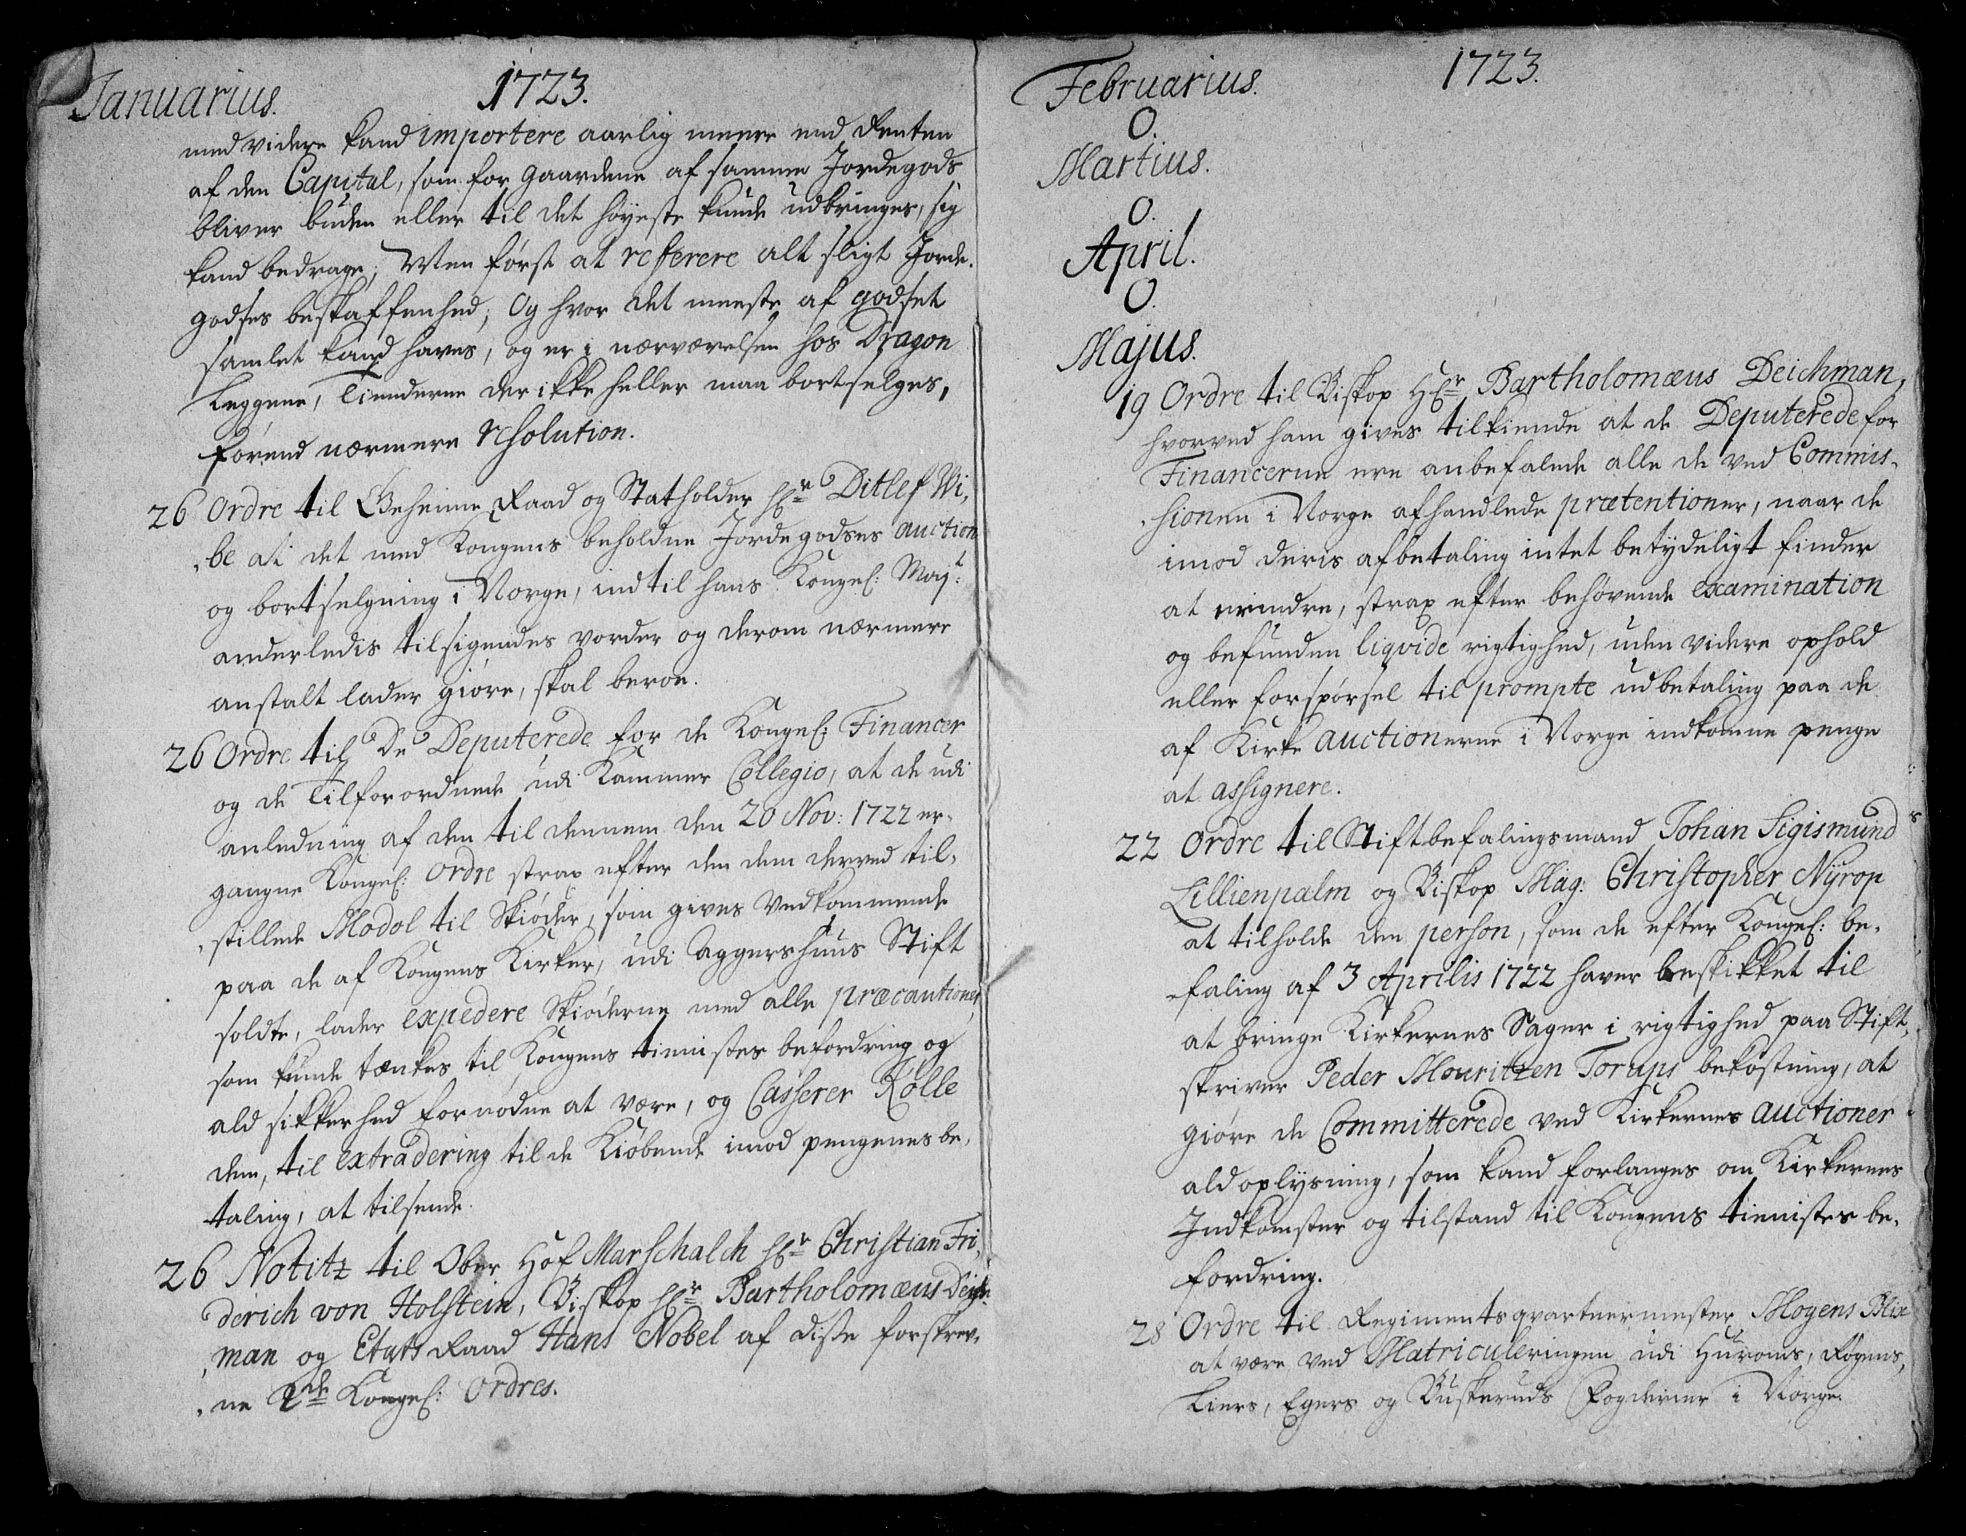 Januarius. 1723.
med videre kand importere aarlig meere end Renten
af den Capital, som for gaardene af samme Jordegods
bliver buden eller til det høyeste kunde udbringes, sig
kand bedrage; Men først at referere alt sligt Jorde-
godses beskaffenhed; Og hvor det meeste af godset
samlet kand haves, og er i nærværelsen hos Dragon
Leggene, Tienderne der ikke heller maa bortselges,
forend nærmere resolution.
26 Ordre til Geheime Raad og Statholder Hr Ditlef Wi-
be at det med Kongens beholdne Jordegodses auction
og bortselgning i Norge, indtil hans Kongel: Majt:
anderledis tilsigendes vorder og derom nærmere
anstalt lader giøre, skal beroe.
26 Ordre til De Deputerede for de Kongel: Financer
og de Tilforordnede udi Kammer Collegio, at de udi
anledning af den til dennem den 20 Nov: 1722 er-
gangne Kongel: Ordre strax efter den dem derved til-
stillede Modol til Skiøder, som gives Vedkommende
paa de af Kongens Kirker, udi Aggershuus Stift
soldte, lader expedere Skiøderne med alle præcautioner
som kunde tænkes til Kongens tienistes befordring og
ald sikkerhed fornødne at være, og Casserer Rölle
dem, til extradering til de Kiøbende imod pengenes be-
taling, at tilsende.
26 Notitz til Ober Hof Marschalch Hr Christian Fri-
derich von Holstein, Biskop Hr Bartholomæus Deich-
man og Etats Raad Hans Nobel af disse forskrev-
ne 2de Kongel: Ordres.
Februarius. 1723.
O.
Martius.
O.
April.
O.
Majus.
19 Ordre til Biskop Hr Bartholomæus Deichman,
hvorved ham gives tilkiende at de Deputerede for
Financerne ere anbefalede alle de ved Commis-
sionen i Norge afhandlede prætentioner, naar de
imod deris afbetaling intet betydeligt finder
at erindre, strax efter behøvende examination
og befunden liqvide rigtighed, uden videre ophold
eller forspørsel til prompte udbetaling paa de
af Kirke auctionerne i Norge indkomne penge
at assignere.
22 Ordre til Stiftbefalingsmand Johan Sigismund
Lillienpalm og Biskop Mag: Christopher Nyrop
at tilholde den person, som de efter Kongel: be-
faling af 3 Aprilis 1722 haver beskikket til
at bringe Kirkernes Sager i rigtighed paa Stift-
skriver Peder Mouritzen Torups bekostning, at
giøre de Committerede ved Kirkernes auctioner
ald oplysning, som kand forlanges om Kirkernes
Indkomster og tilstand til Kongens tienistes be-
fordring.
28 Ordre til Regimentsqvarteermester Mogens Blix
at være ved Matriculeringen udi Hurums, Røgens,
Liers, Egers og Buskeruds Fogderier i Norge.